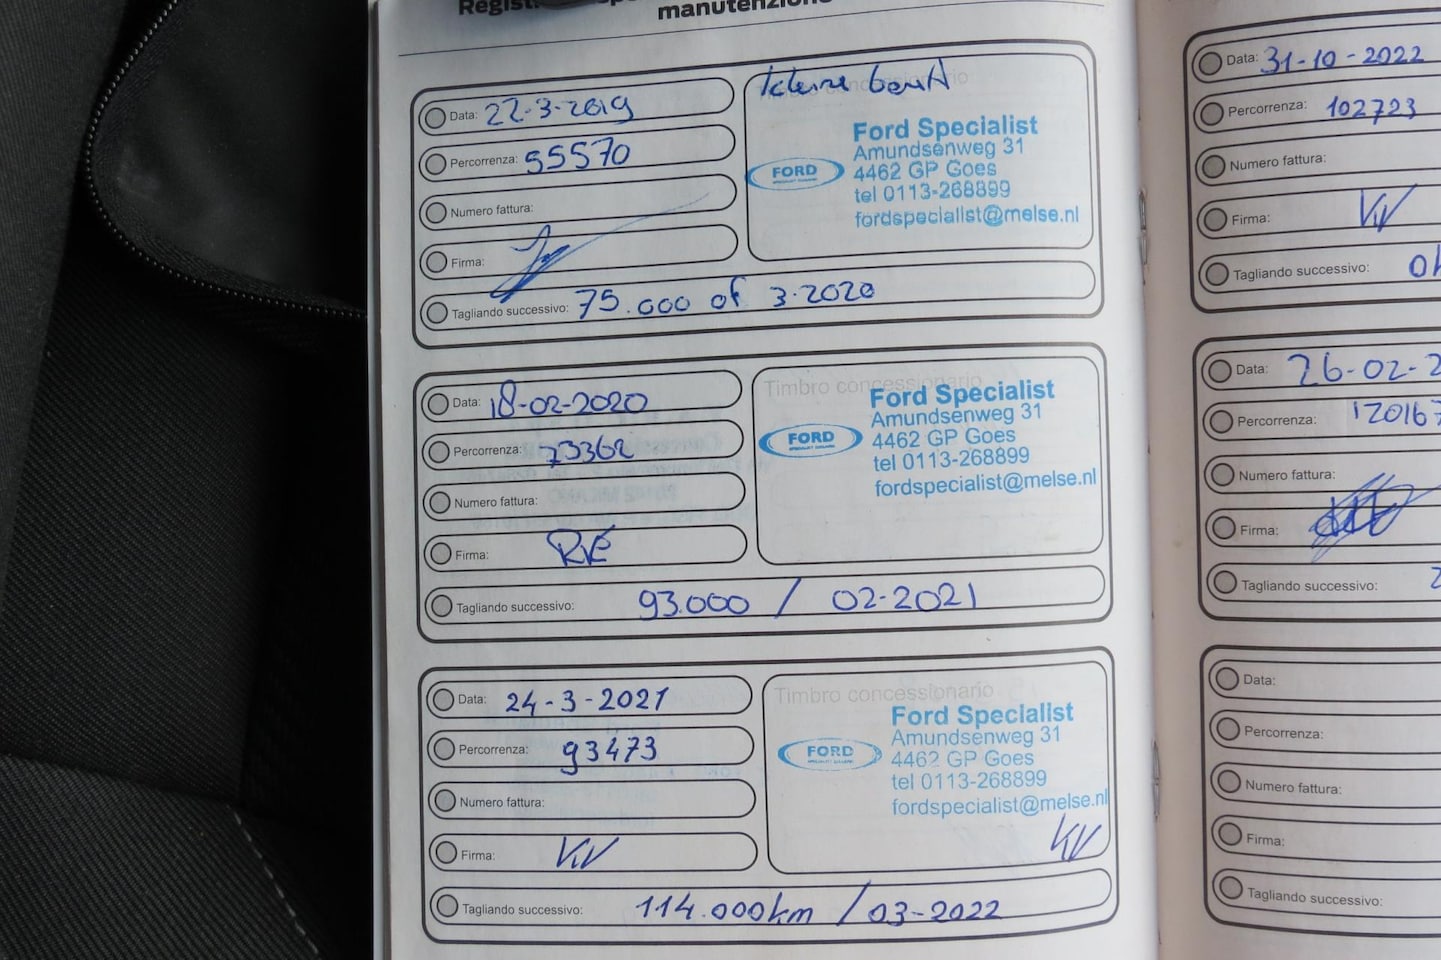 manutenzione
Data: 22-3-2019
Percorrenza: 55570
Numero fattura:
Firma:
Tagliando successivo: 75.000 of 3-2020
kleine beurt
Ford Specialist
Amundsenweg 31
FORD
4462 GP Goes
tel 0113-268899
fordspecialist@melse.nl
Data: 18-02-2020
Percorrenza: 73362
Numero fattura:
Firma:
Tagliando successivo: 93.000 / 02-2021
Timbro concessionario
Ford Specialist
Amundsenweg 31
FORD
4462 GP Goes
tel 0113-268899
fordspecialist@melse.nl
Data: 24-3-2021
Percorrenza: 93473
Numero fattura:
Firma: KV
Tagliando successivo: 114.000km / 03-2022
Timbro concessionario
Ford Specialist
Amundsenweg 31
FORD
4462 GP Goes
tel 0113-268899
fordspecialist@melse.nl
KV
Data: 31-10-2022
Percorrenza: 102723
Numero fattura:
Firma: KV
Tagliando successivo:
Data: 26-02-2
Percorrenza: 120167
Numero fattura:
Firma:
Tagliando successivo:
Data:
Percorrenza:
Numero fattura:
Firma:
Tagliando successivo: